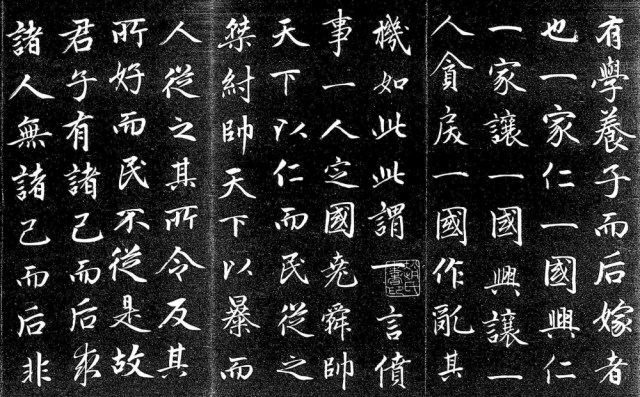 有學養子而后嫁者
也一家仁一國興仁
一家讓一國興讓一
人貪戾一國作亂其
機如此此謂一言僨
事一人定國堯舜帥
天下以仁而民從之
桀紂帥天下以暴而
人從之其所令反其
所好而民不從是故
君子有諸己而后求
諸人無諸己而后非